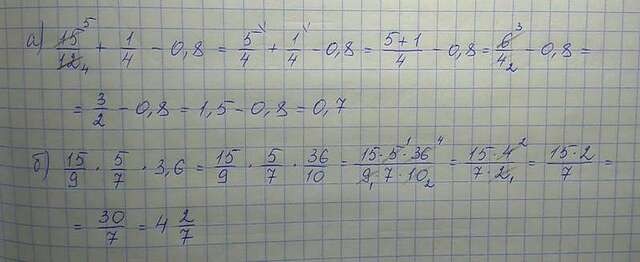 а) 15⁵/12₄ + 1/4 - 0,8 = 5\/4 + 1\/4 - 0,8 = 5+1/4 - 0,8 = 6³/4₂ - 0,8 =
= 3/2 - 0,8 = 1,5 - 0,8 = 0,7
б) 15/9 · 5/7 · 3,6 = 15/9 · 5/7 · 36/10 = 15·5¹·36⁴/9₁·7·10₂ = 15·4²/7·2₁ = 15·2/7 =
= 30/7 = 4 2/7